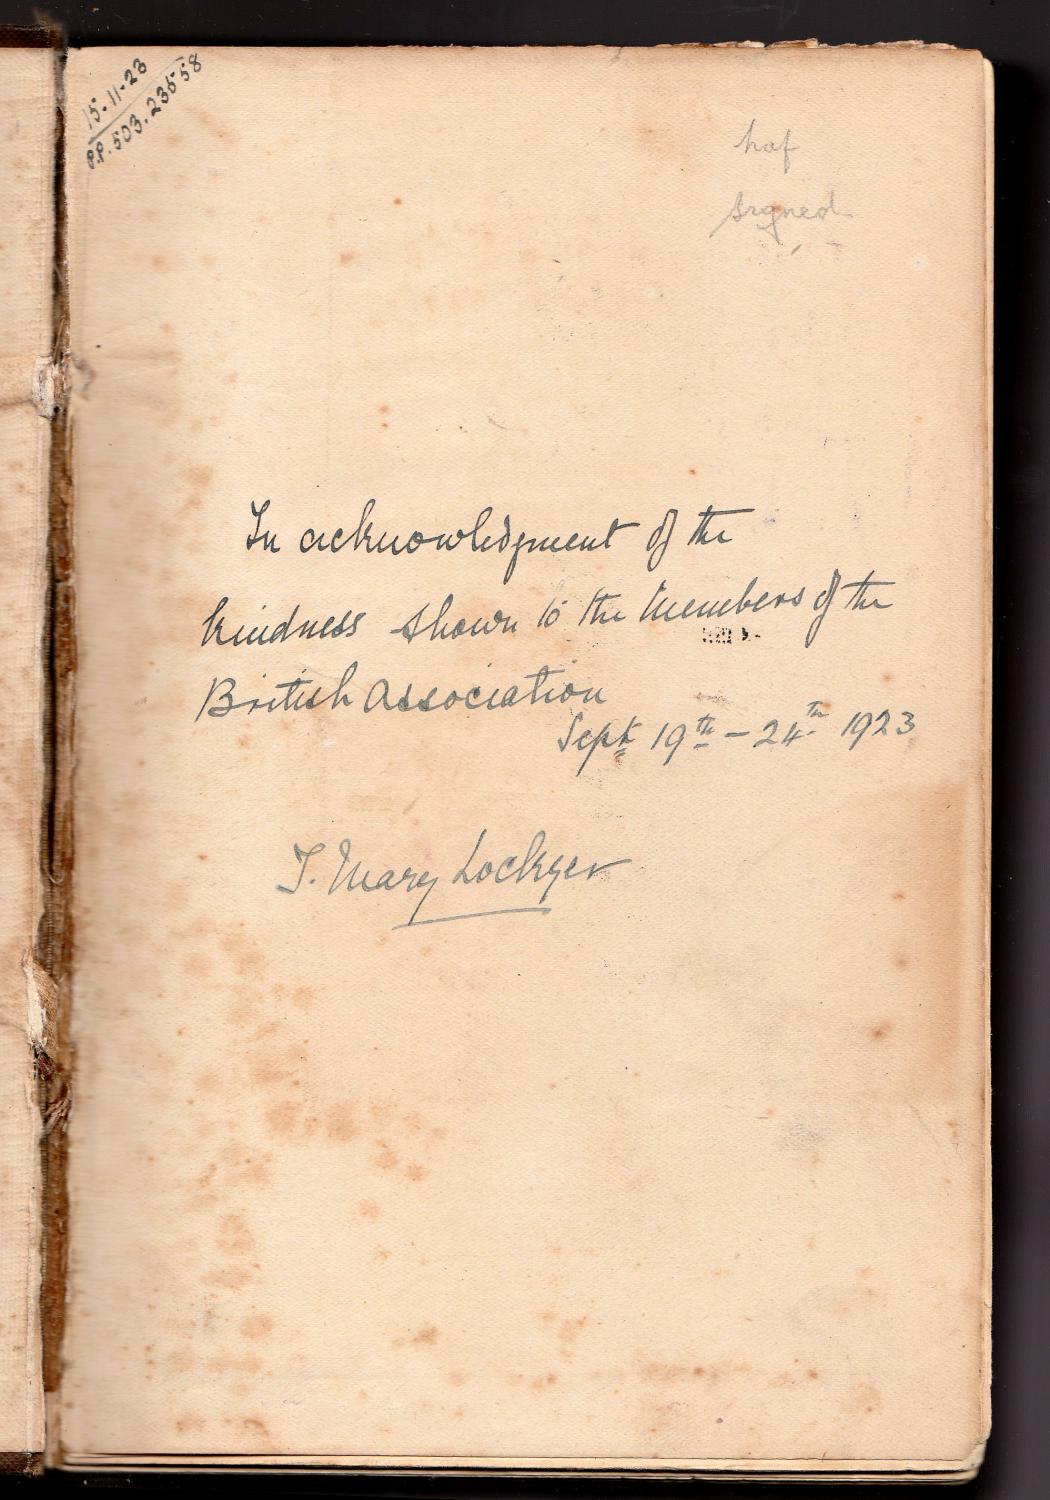 15.11.23
P.P. 503.23558
haf
signed
In acknowledgment of the
kindness shown to the Members of the
British Association
Sept 19th – 24th 1923
T. Mary Lockyer